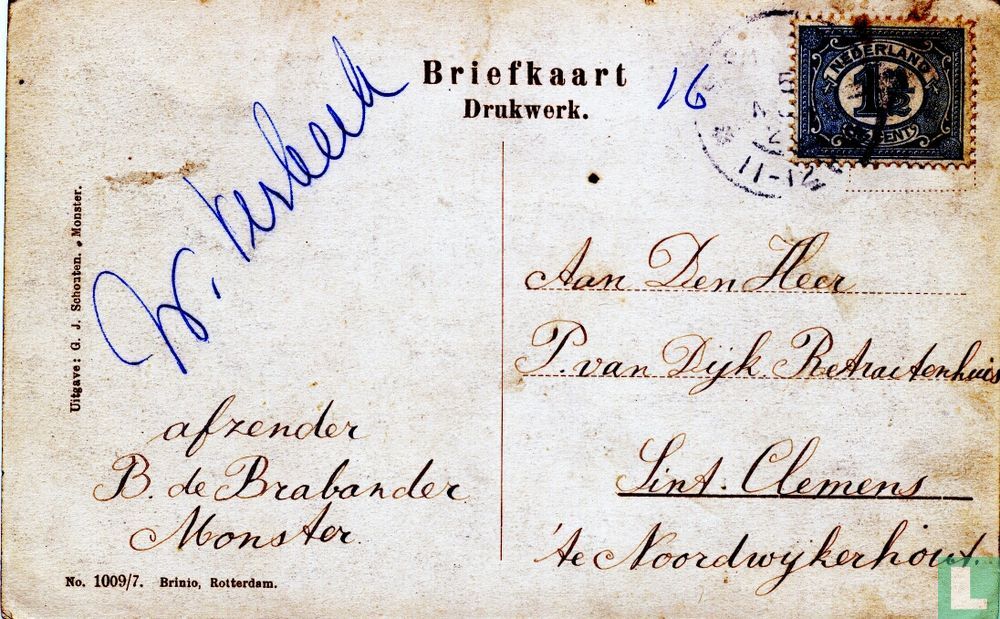 Briefkaart
Drukwerk.
16
NEDERLAND
1½
CENT
11-12
W. Kerkeek
Uitgave: G. J. Schouten. Monster.
Aan Den Heer
P. van Dijk. Retraitenhuis
Sint. Clemens
'te Noordwijkerhout.
afzender
B. de Brabander
Monster
No. 1009/7. Brinio, Rotterdam.
L